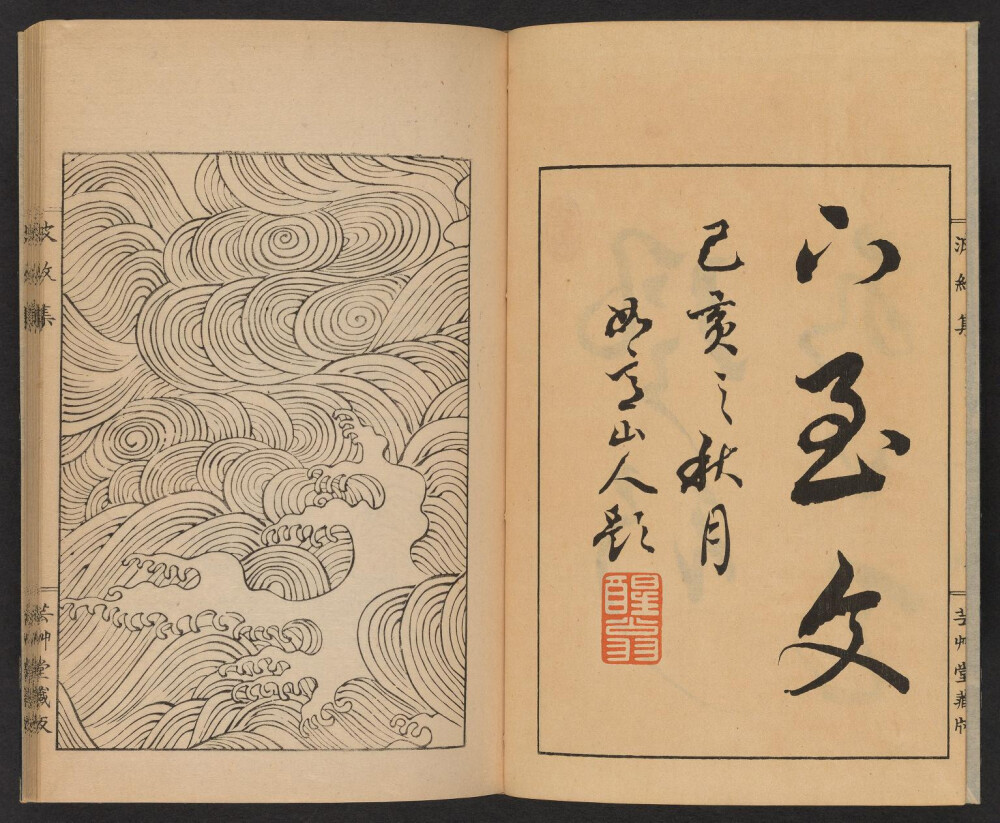 下至文
己亥之秋月
如意山人題
醒翁
波紋集
芸艸堂藏版
波紋集
芸艸堂藏版